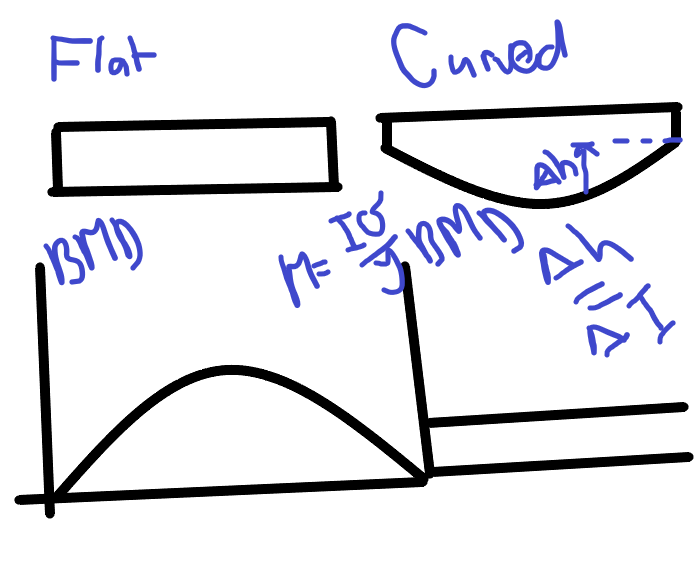 Flat
Curved
Δh
BMD
M = Iσ/y
BMD
Δh
=
ΔI